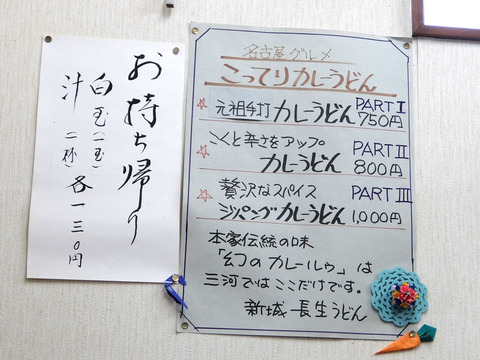 お持ち帰り
白玉(一玉)
汁(一杯)各一三〇円
名古屋グルメ
こってりカレーうどん
☆元祖手打カレーうどん PARTⅠ 750円
こくと辛さをアップ PARTⅡ
カレーうどん 800円
☆贅沢なスパイス PARTⅢ
ジャパングカレーうどん 1,000円
本家伝統の味
「幻のカレールゥ」は
三河ではここだけです。
新城 長生うどん